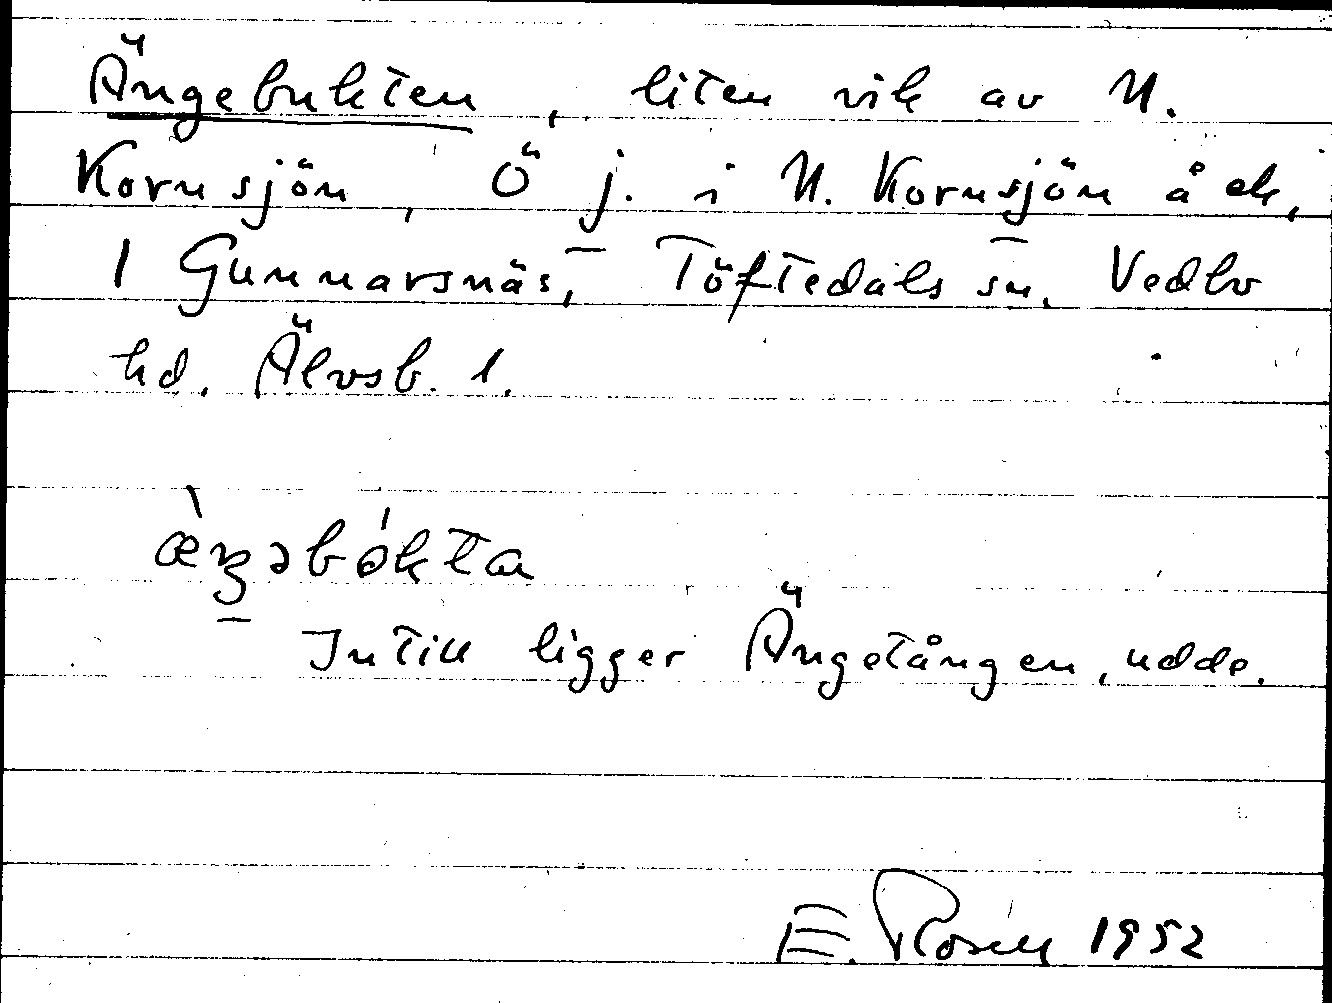 Ängebukten, liten vik av N.
Kornsjön, Ö j. i N. Kornsjön å ek,
1 Gunnarsnäs, Töftedals sn. Vedbo
hd. Älvsb. l.
æ̀ŋəbókta
Intill ligger Ängetången, udde.
E. Rosell 1952